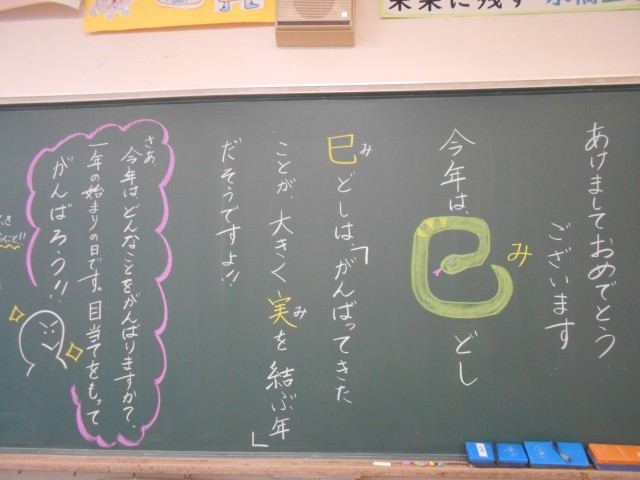 あけましておめでとう
ございます
今年は、巳どし
み
巳どしは、「がんばってきた
み
ことが、大きく実を結ぶ年」
み
だそうですよ!!
さあ、
今年は、どんなことをがんばりますか？
一年の始まりの日です。目当てをもって
がんばろう!!